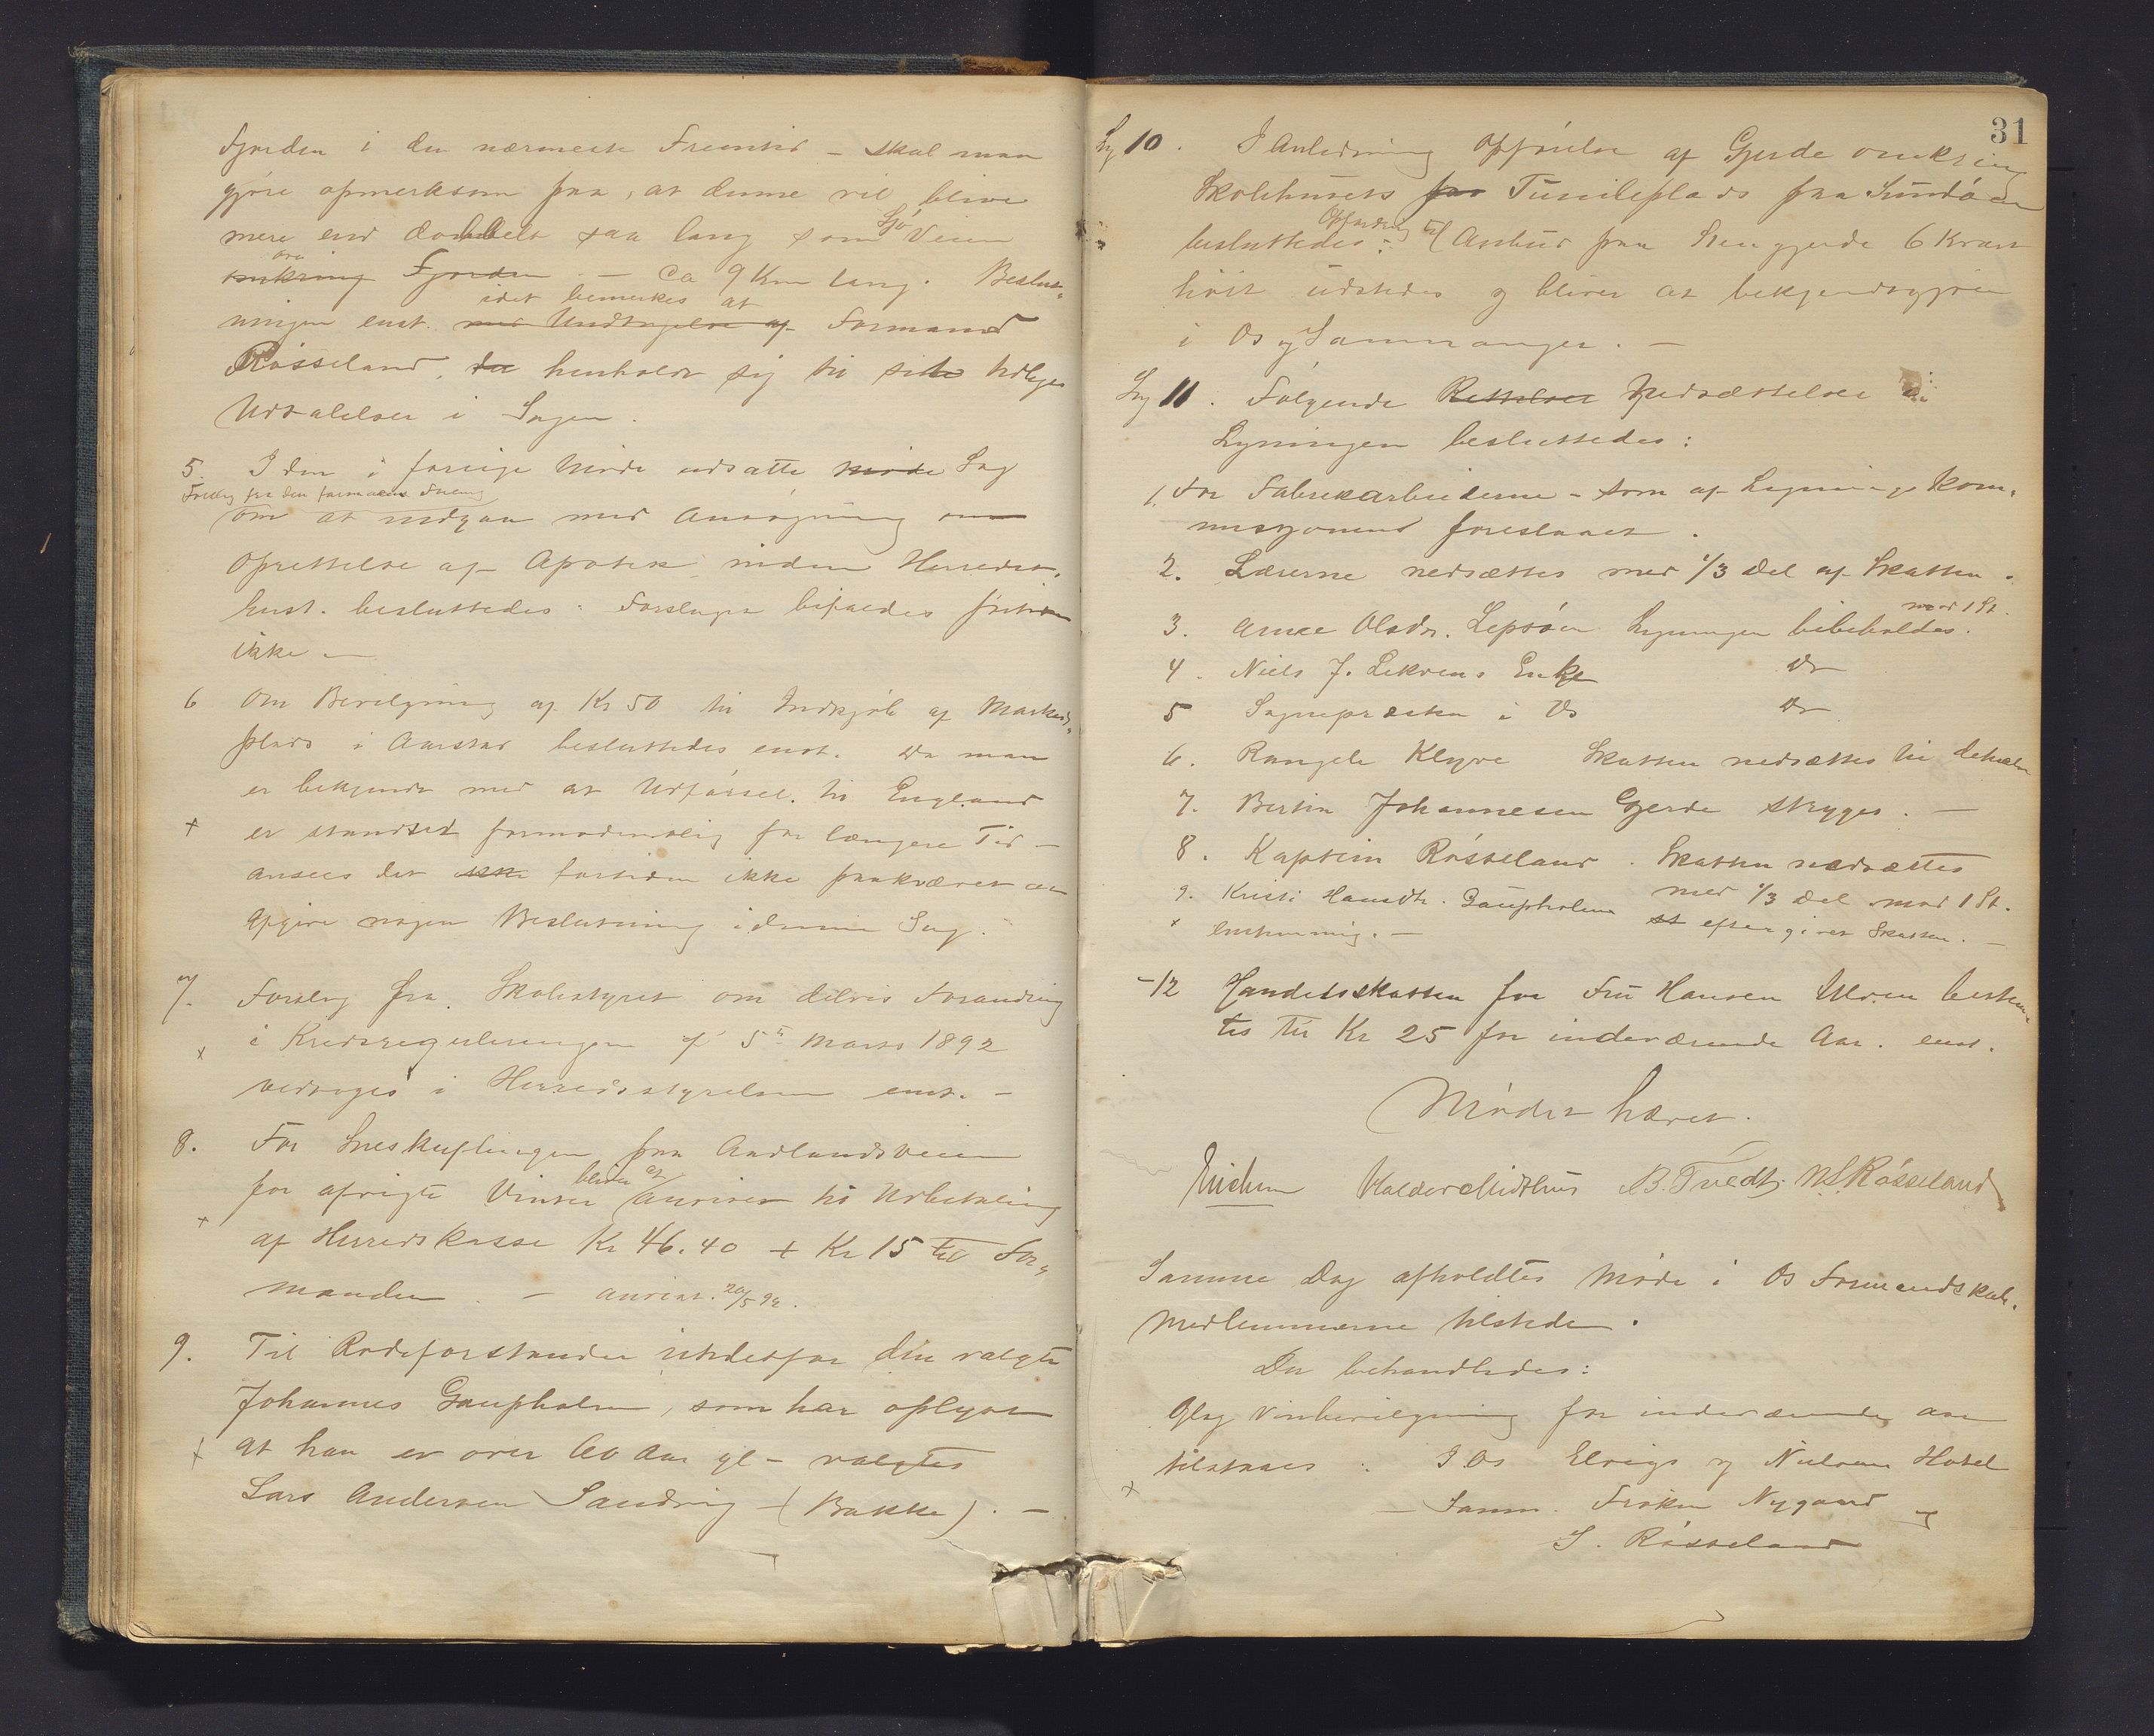 Fjorden i den nærmeste Fremtid - skal man
gjøre opmerksom paa, at denne vil blive
mere end dobbelt saa lang som Sjø Veien
omkring over Fjorden. - Ca 9 Km lang. Beslut-
ningen enst. med Undtagelse af idet bemerkes at Formand
Røsseland, da henholdt sig til sine tidligere
Udtalelser i Sagen.
5. I den i forrige Møde udsatte Møde Sag
Forslag fra den
om at indgaa med Ansøgning om
Oprettelse af Apotek inden Herredet,
enst. besluttedes: Forslaget bifaldes
ikke -
6 Om Bevilgning af Kr 50 til Indkjøb af Markeds-
plads i Aarstad besluttedes enst. Da man
er bekjendt med at Udførsel til England
x er standset formodentlig for længere Tid -
ansees det ikke fortiden ikke paakrævet at
afgive nogen Beslutning i denne Sag.
7. Forslag fra Skolestyret om delvis Forandring
x i Kredsreguleringen af 5te Marts 1892
vedtages i Herredsstyrelsen enst. -
8. For Sneskuflingen paa Aadlandsveien
for afvigte Vinter bliver at anvises til Udbetaling
x af Herredskasse Kr 46.40 + Kr 15 til For-
manden. - anvist. 20/5 92.
9. Til Rodeforstander istedetfor den valgte
Johannes Gaupholm, som har oplyst
x at han er over 60 Aar gl - valgtes
Lars Andersen Sandvig - (Bakke). -
31
Sag 10. I Anledning Opførelse af Gjerde omkring
Skolehusets for Tuntleplads paa
besluttedes: Opfordring til Anbud paa Stengjerde 6 Kvart
høit udstedes og bliver at bekjendtgjøre
i Os og Samnanger. -
Sag 11. Følgende Rettelser Nedsættelser i
Ligningen besluttedes:
1. For Fabrekarbeiderne - som af Ligningskom-
misjonens foreslaaet.
2. Lærerne nedsættes med 1/3 Del af Skatten.
3. Anne Olsdr. Lepsøen Ligningen bibeholdes. mod 1 St.
4. Niels J. Lekvens Enke Do
5 Sognepræsten i Os Do
6. Rangele Klyve Skatten nedsættes til det halve
7. Bertin Johannesen Gjerde stryges. -
8. Kaptein Røsseland. Skatten nedsættes
med 1/3 Del mod 1 St.
9. Kristi Hansdtr. Gaupholm st eftergivet Skatten. -
x Enstemmig. -
- 12 Handelsskatten for Fru Hansen Ulven bestem-
tes til Kr 25 for indeværende Aar. enst.
Mødet hævet.
Erichsen Haldor Midthus B. Tvedt. N. S. Røsseland
Samme Dag afholdtes Møde i Os Formandskab.
Medlemmerne tilstede.
Da behandledes:
Ølog Vinbevilgning for indeværende Aar
x tilstaaes: I Os Elvigs og Nielsens Hotel
- Samn. Frøken Nygaard og
S. Røsseland